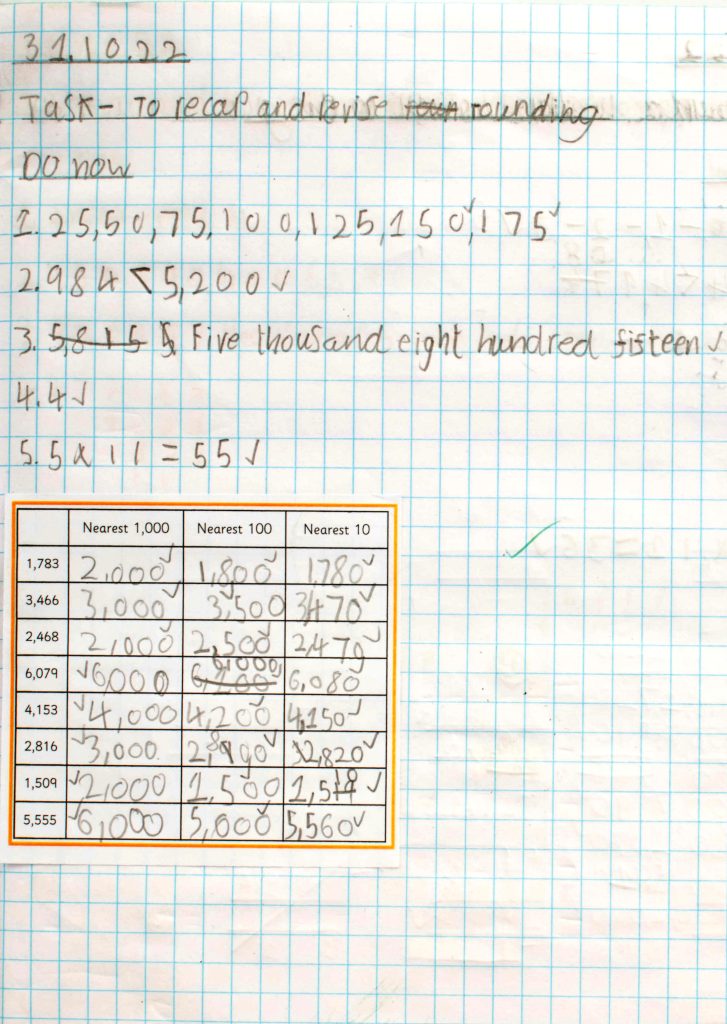 31.10.22
Task - To recap and revise rounding
Do now
1. 25, 50, 75, 100, 125, 150, 175
2. 984 < 5,200
3. 5,815 5 Five thousand eight hundred fisteen
4. 4
5. 5 x 11 = 55
Nearest 1,000 Nearest 100 Nearest 10
1,783 2,000 1,800 1,780
3,466 3,000 3,500 3,470
2,468 2,000 2,500 2,470
6,079 6,000 6,100 6,000 6,080
4,153 4,000 4,200 4,150
2,816 3,000 2,800 2,820
1,509 2,000 1,500 1,510
5,555 6,000 5,600 5,560